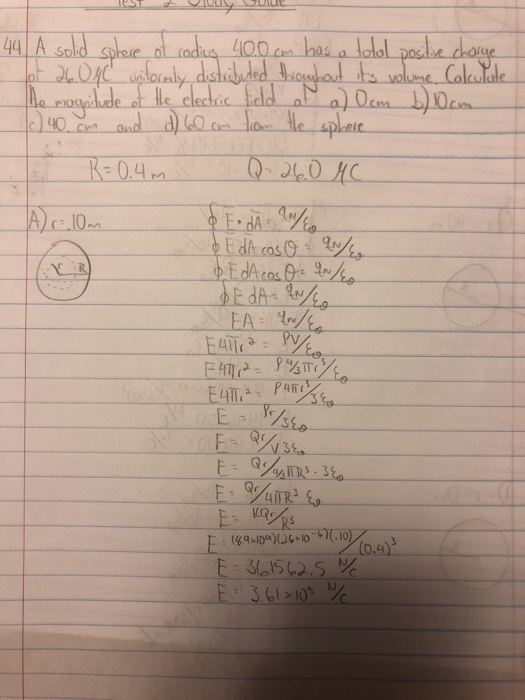 Test 2 Study Guide
44 A solid sphere of radius 40.0 cm has a total positive charge
of 26.0 μC uniformly distributed throughout its volume. Calculate
the magnitude of the electric field at a) 0cm b) 10cm
c) 40. cm and d) 60 cm from the sphere
R = 0.4 m Q = 26.0 μC
A) r = .10m
r R
∮ E • dA = qIN/ε0
∮ E dA cos θ = qIN/ε0
∮ E dA cos θ = qIN/ε0
∮ E dA = qIN/ε0
EA = qIN/ε0
E4πr² = ρV/ε0
E4πr² = ρ 4/3 πr³/ε0
E4πr² = ρ4πr³/3ε0
E = ρr/3ε0
E = Qr/V3ε0
E = Qr/4/3πR³ · 3ε0
E = Qr/4πR³ ε0
E = KQr/R³
E = (8.9×10⁹)(26×10⁻⁶)(.10)/(0.4)³
E = 361562.5 N/C
E = 3.61 × 10⁵ N/C